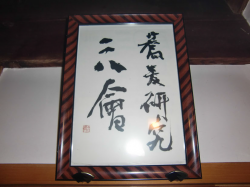 蕎麦研究
二八會